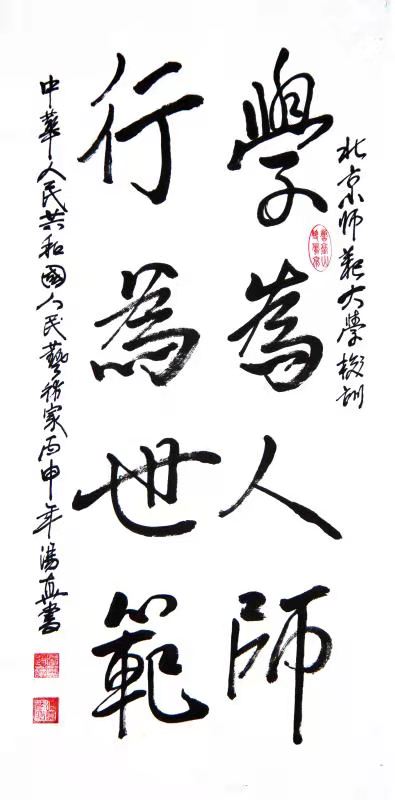 北京师范大學校訓
學為人師
行為世範
中華人民共和國人民藝術家丙申年湯真書